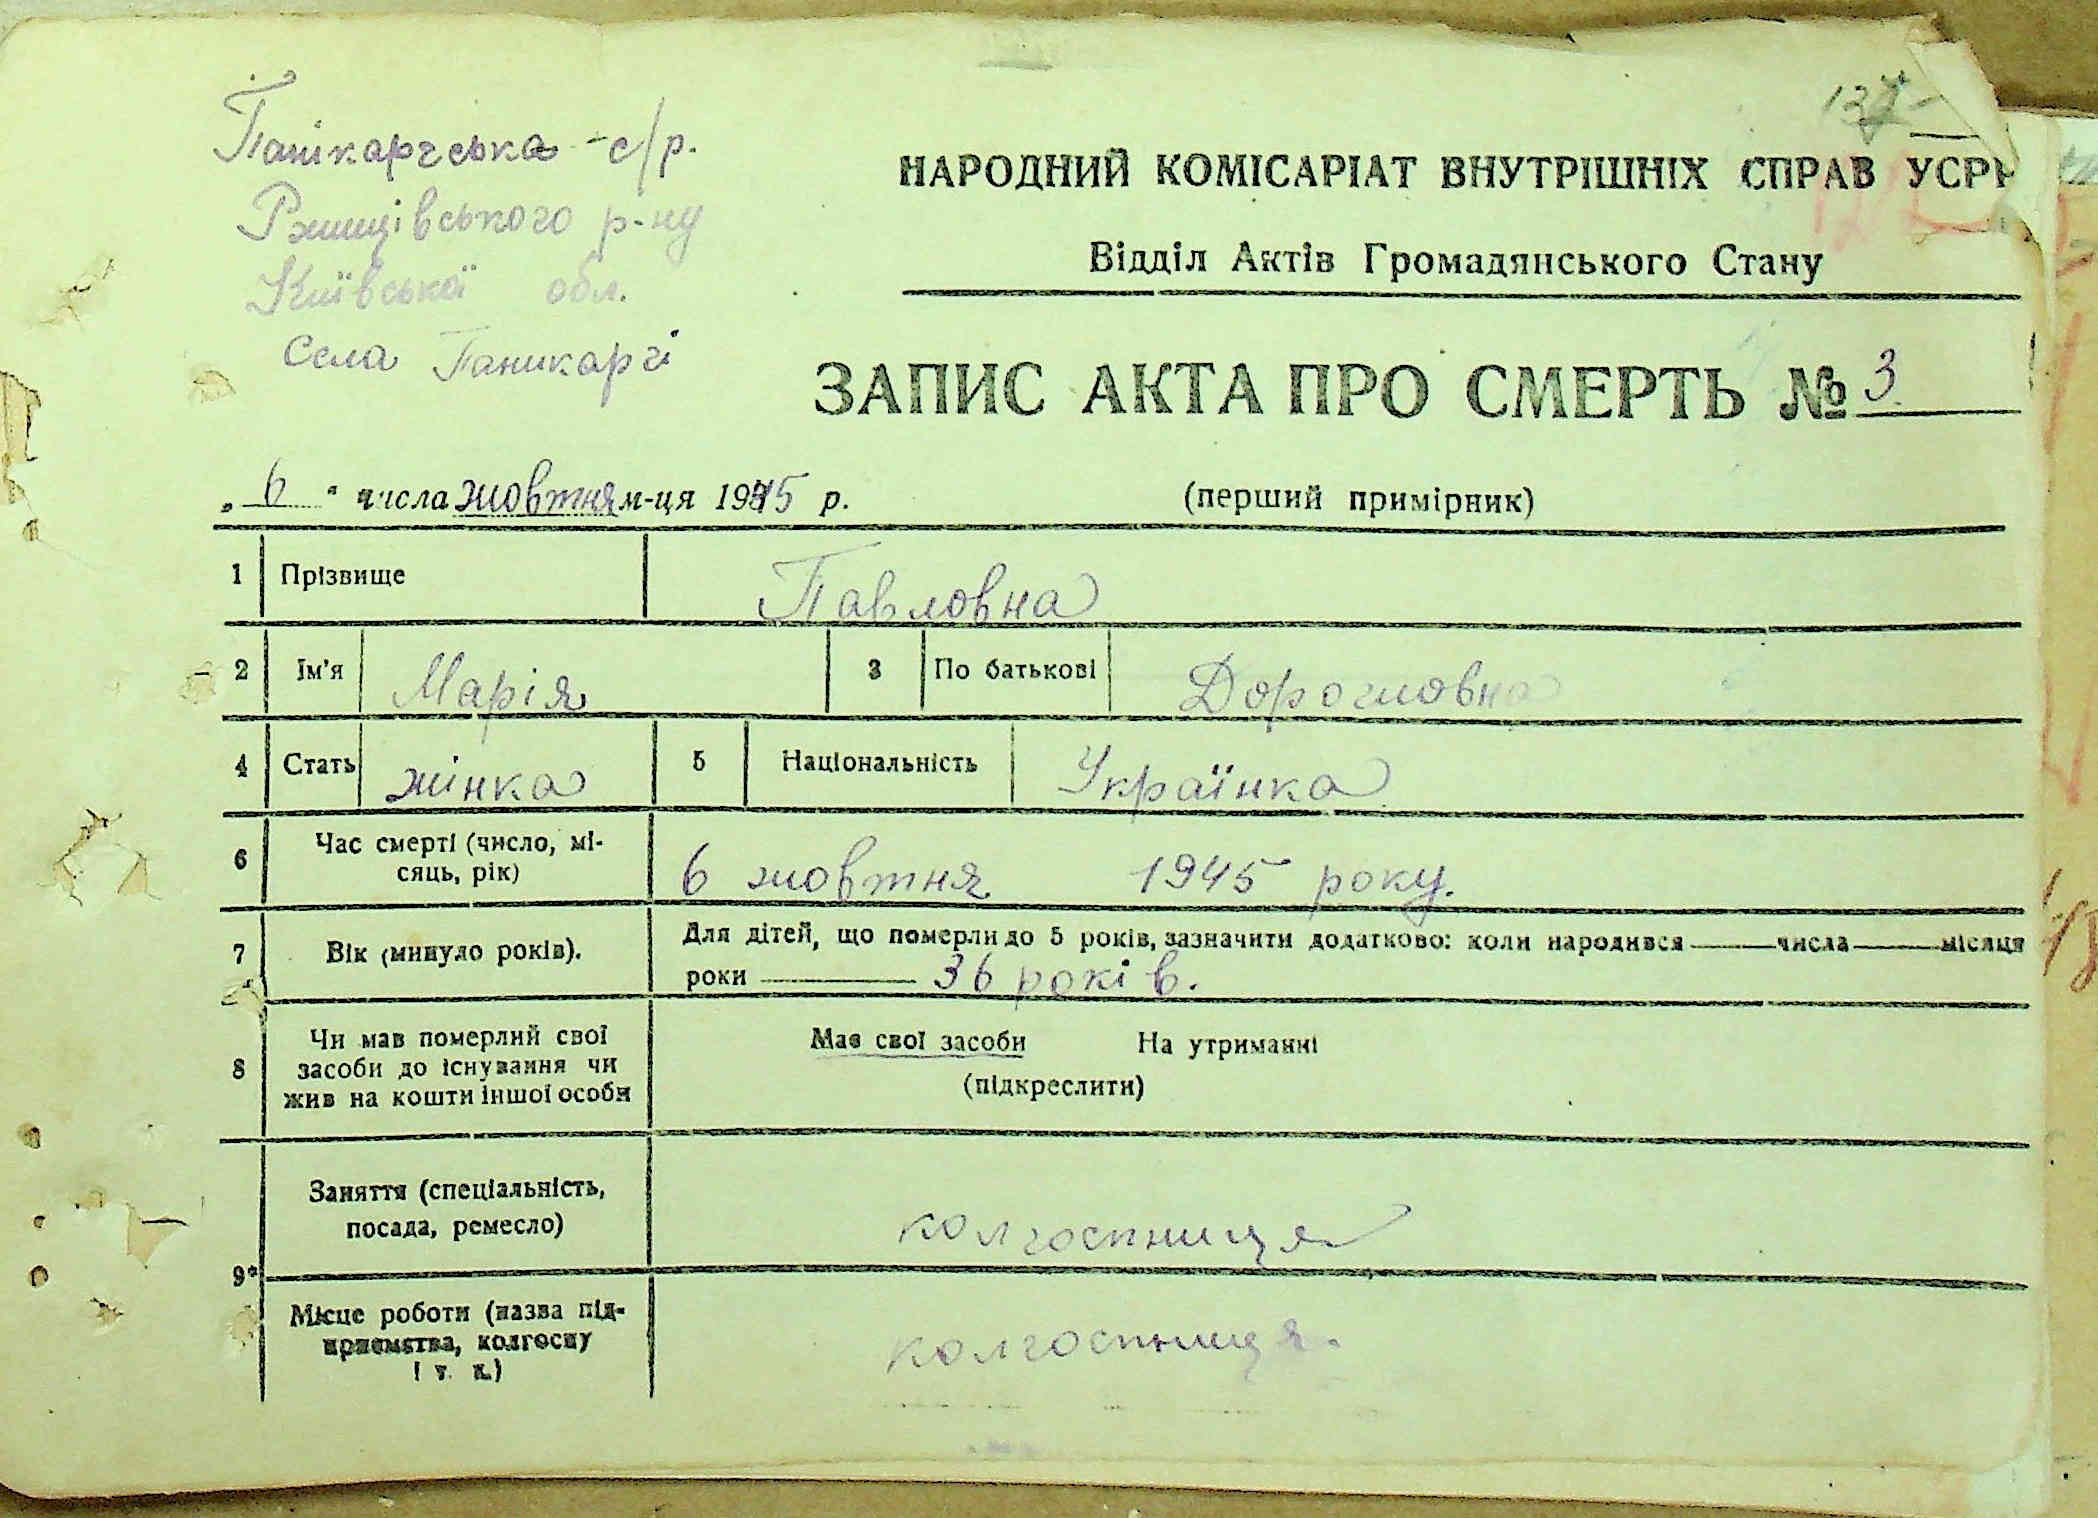 Панікарчська с/р.
137
Ржищівського р-ну
Київської обл.
села Паникарчі
НАРОДНИЙ КОМІСАРІАТ ВНУТРІШНІХ СПРАВ УСРР
Відділ Актів Громадянського Стану
ЗАПИС АКТА ПРО СМЕРТЬ № 3
„ 6 " числа жовтня м-ця 1945 р.
(перший примірник)
1 Прізвище Павловна
2 Ім'я Марія 3 По батькові
4 Стать жінка 5 Національність Українка
6 Час смерті (число, мі-
сяць, рік) 6 жовтня 1945 року.
7 Вік (минуло років). Для дітей, що померли до 5 років, зазначити додатково: коли народився числа місяця
роки 36 років.
8 Чи мав померлий свої
засоби до існування чи
жив на кошти іншої особи
Має свої засоби На утриманні
(підкреслити)
9* Заняття (спеціальність,
посада, ремесло) колгоспниця
Місце роботи (назва під-
приємства, колгоспу
і т. і.) колгоспниця.